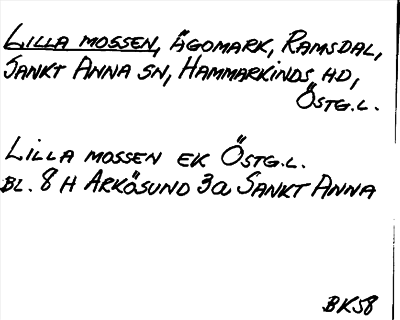 LILLA MOSSEN, ÄGOMARK, RAMSDAL,
SANKT ANNA SN, HAMMARKINDS HD,
ÖSTG.L.
LILLA MOSSEN EK ÖSTG.L.
BL. 8 H ARKÖSUND 3a SANKT ANNA
BK58